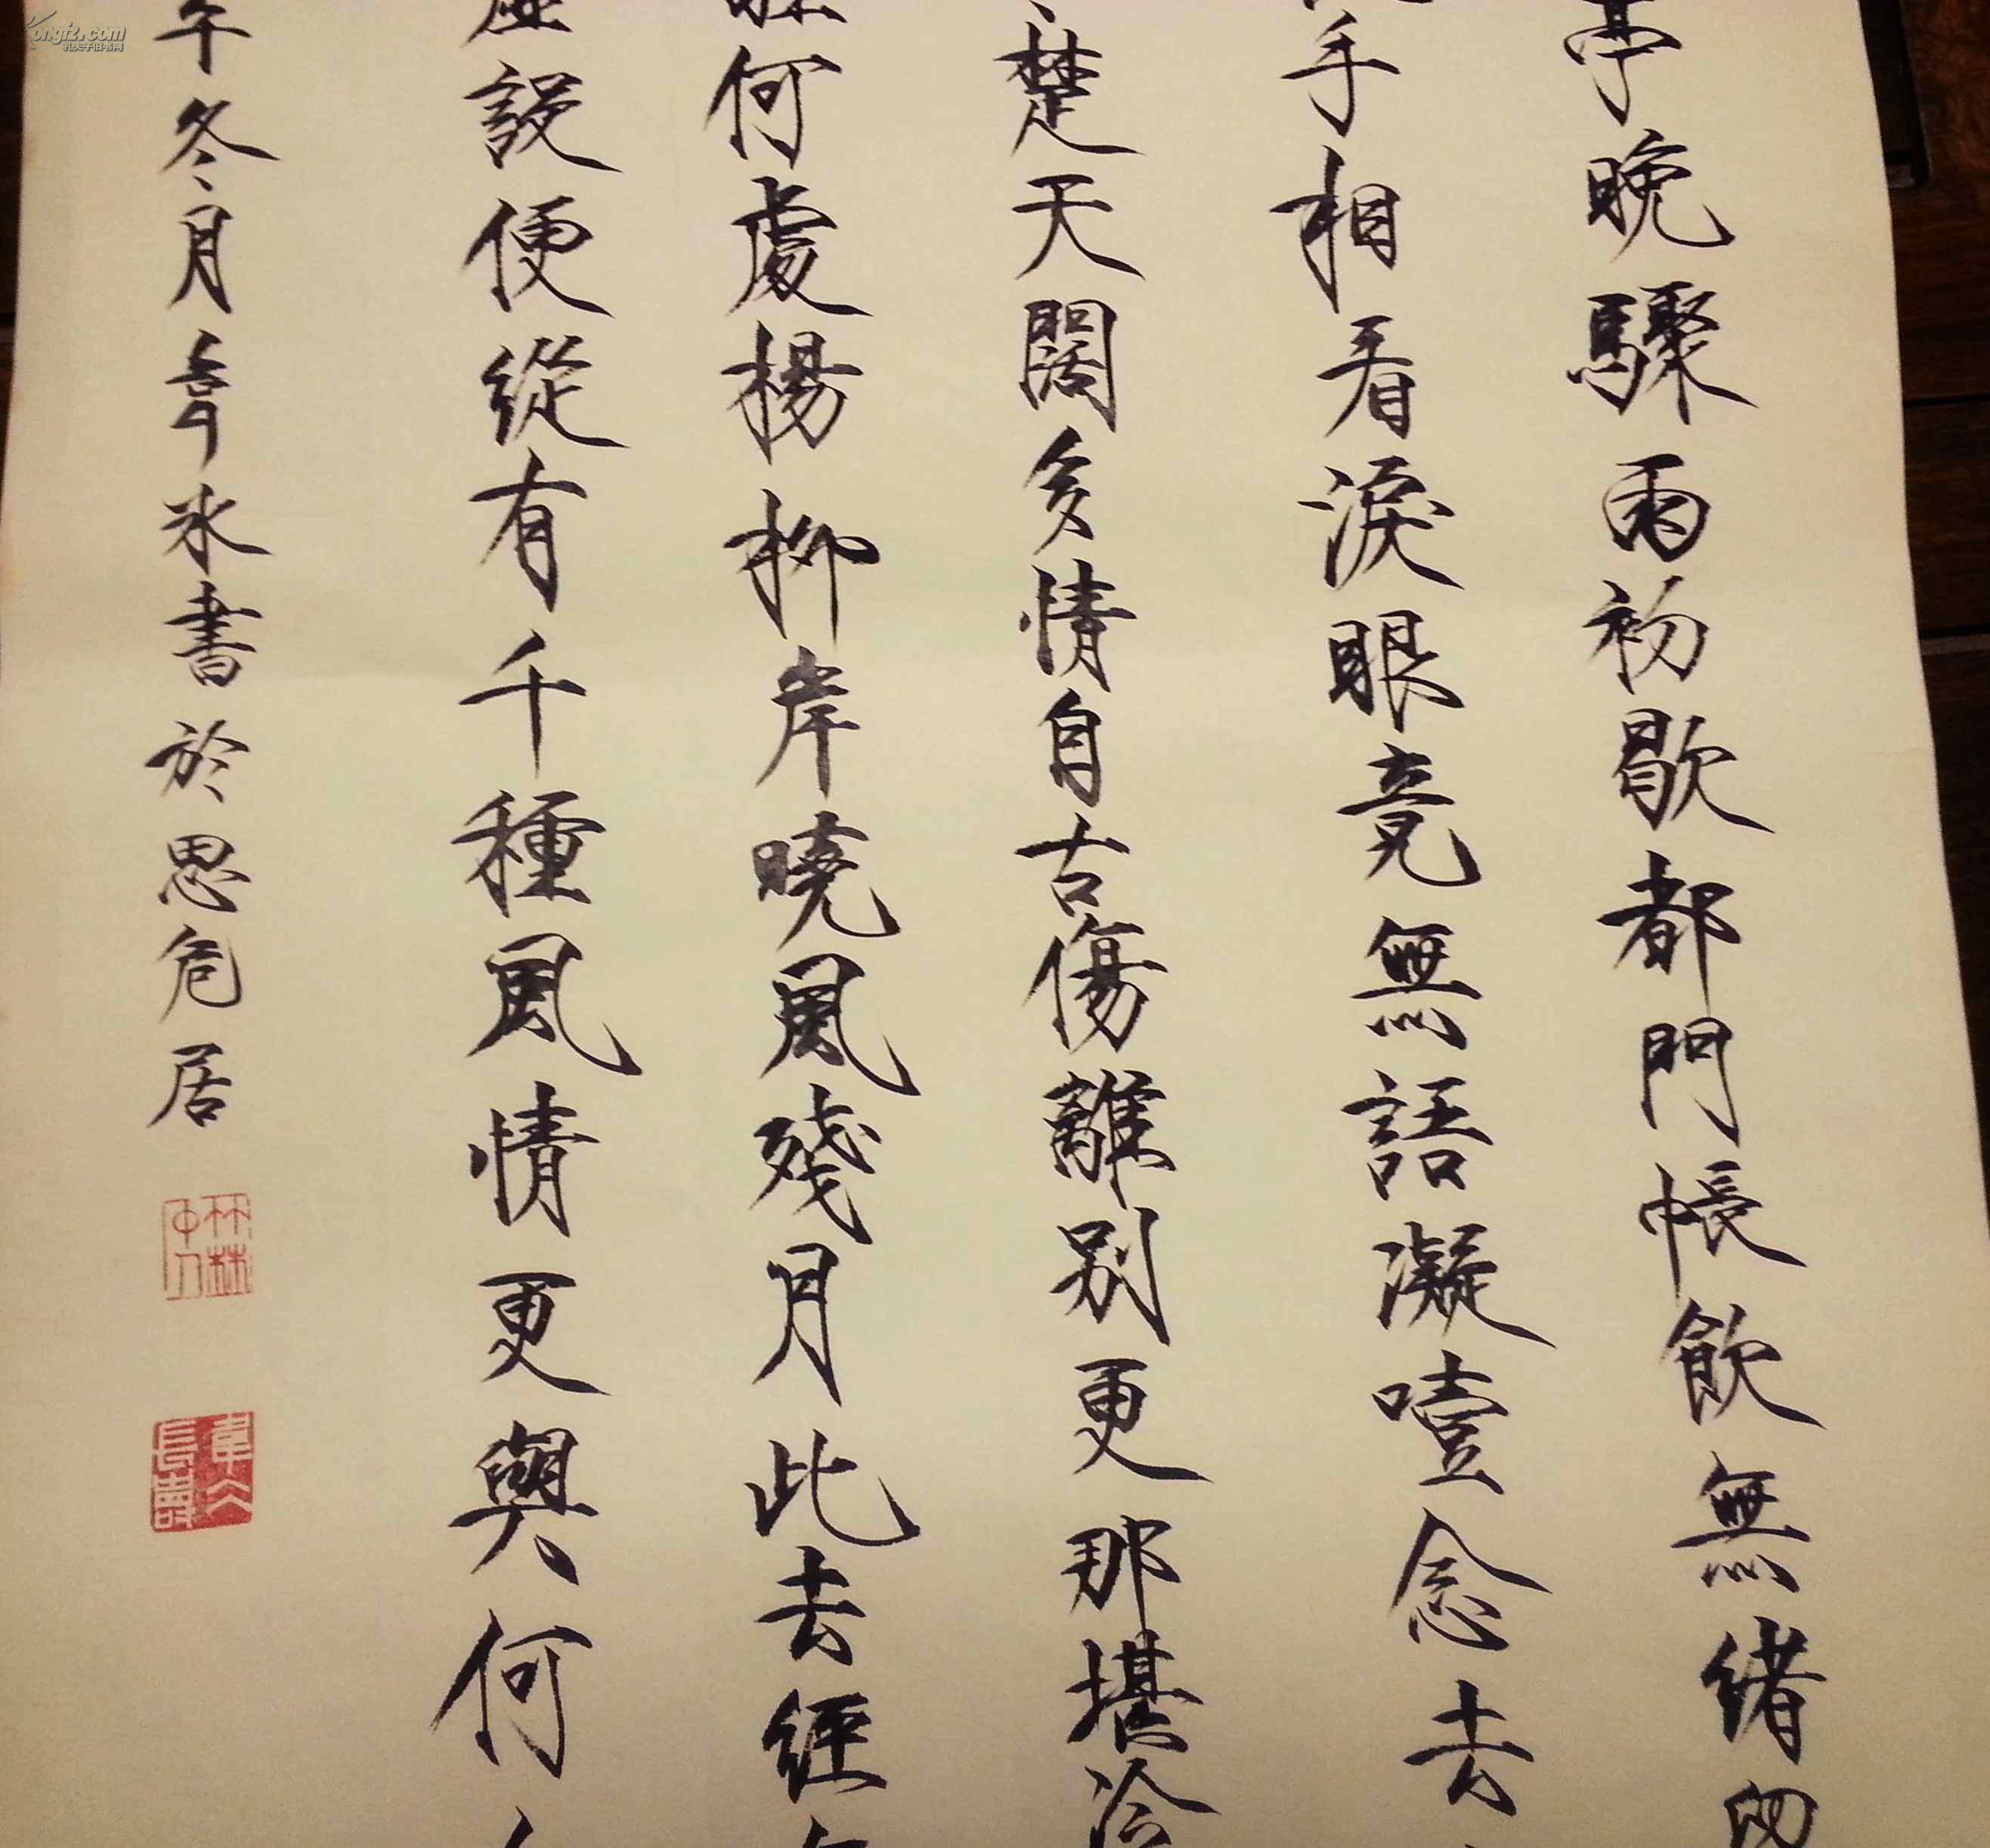 亭晚驟雨初歇都門帳飲無緒留
手相看淚眼竟無語凝噎念去
楚天闊多情自古傷離別更那堪冷
何處楊柳岸曉風殘月此去經年
虛設便縱有千種風情更與何人
午冬月韋水書於思危居
韋公長壽